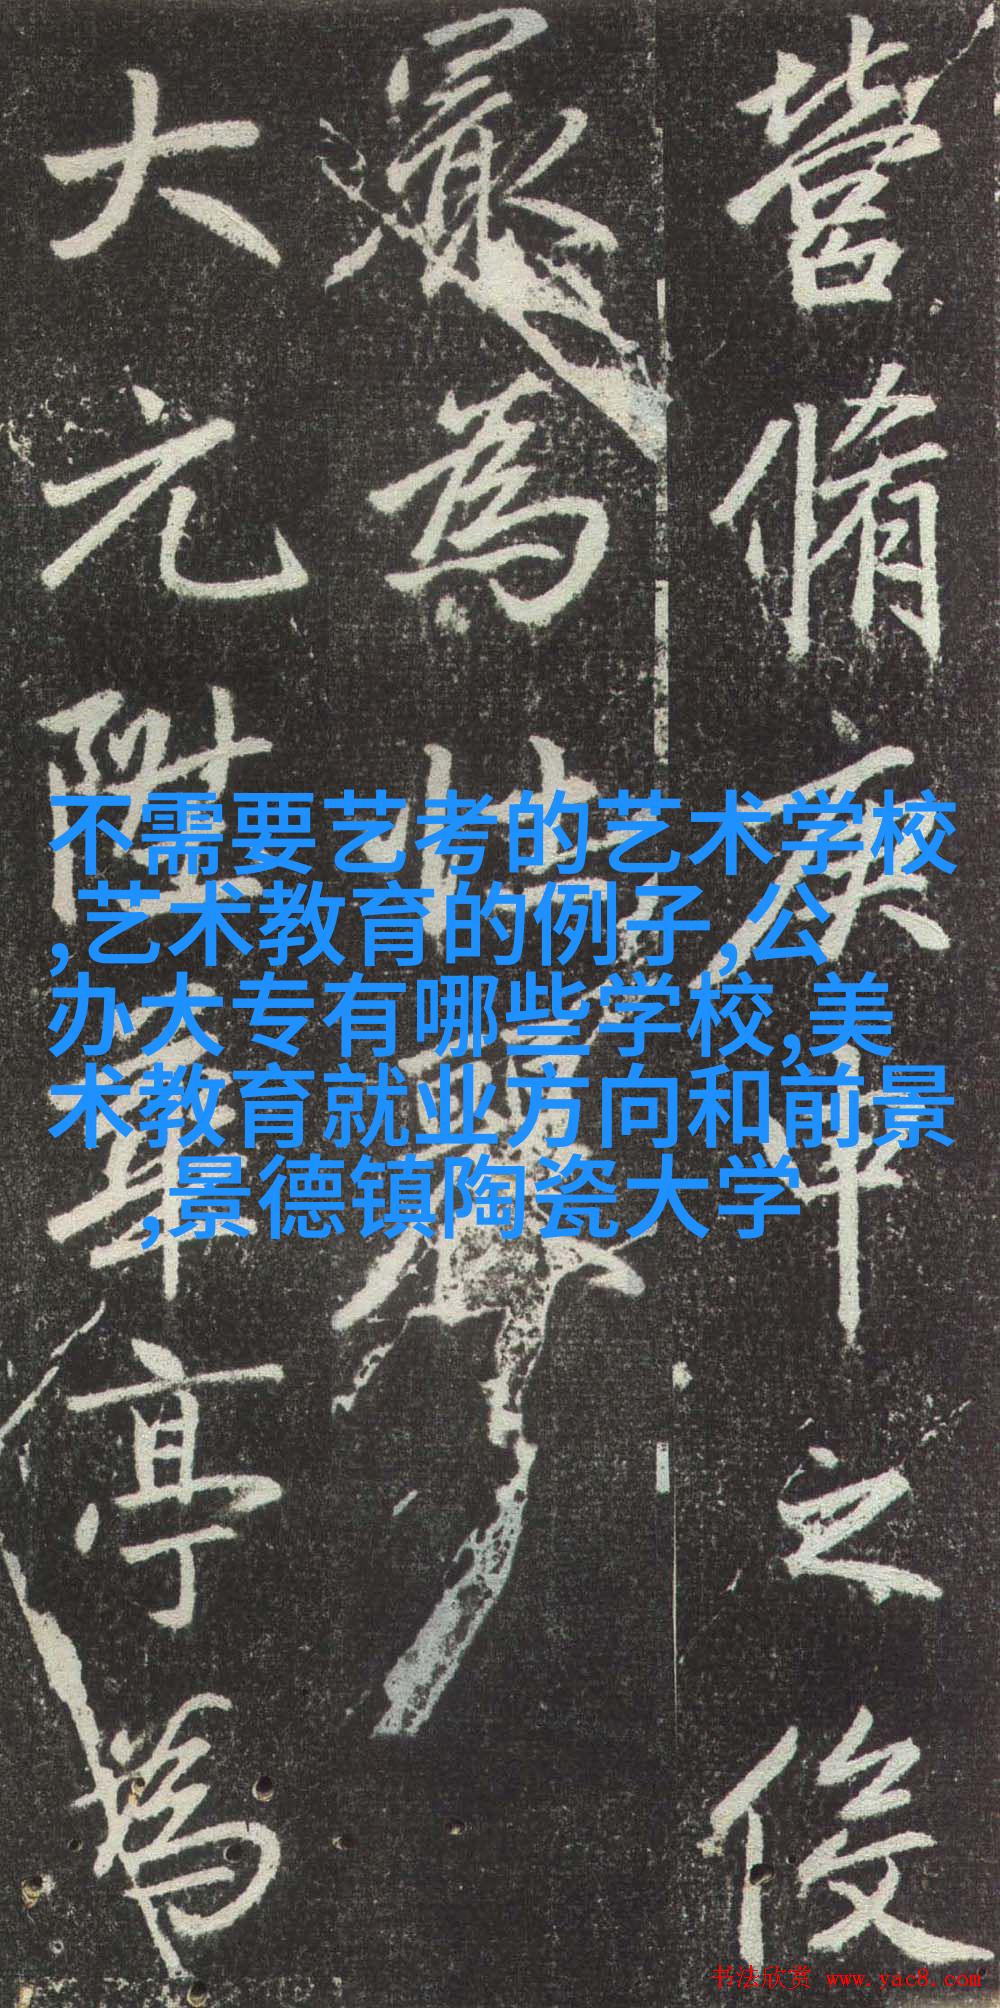 不需要艺考的艺术学校
,艺术教育的例子,公
办大专有哪些学校,美
术教育就业方向和前景
,景德镇陶瓷大学
脩之俊
為
大元陞華亭為
书法欣赏 www.yac8.com